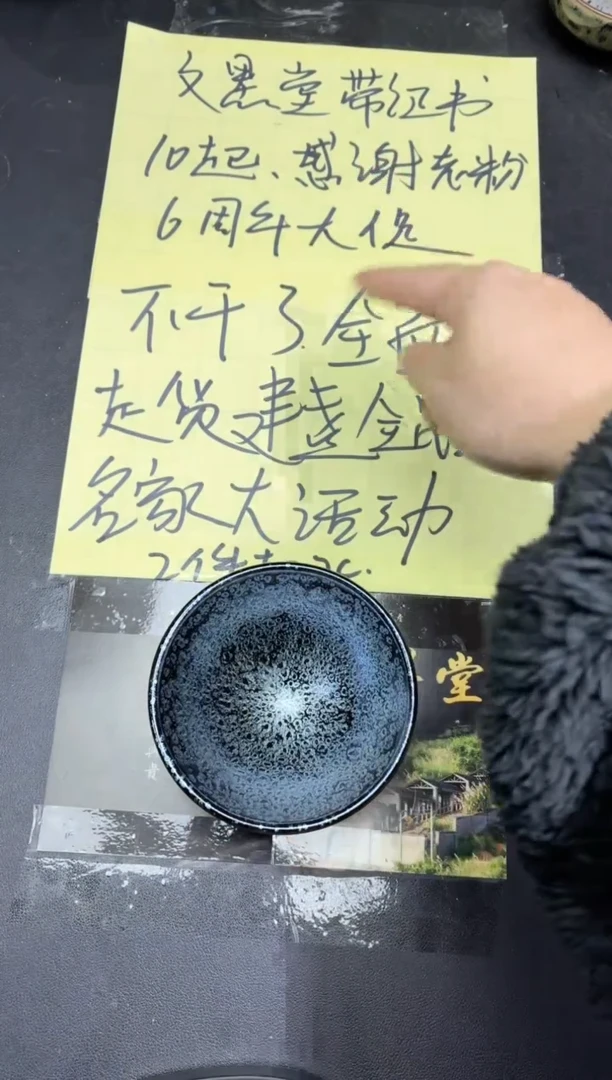 文黑堂带红书
10起、感谢老粉
6周年大促
不干了全
走货建盏全
名家大活动
2件
堂